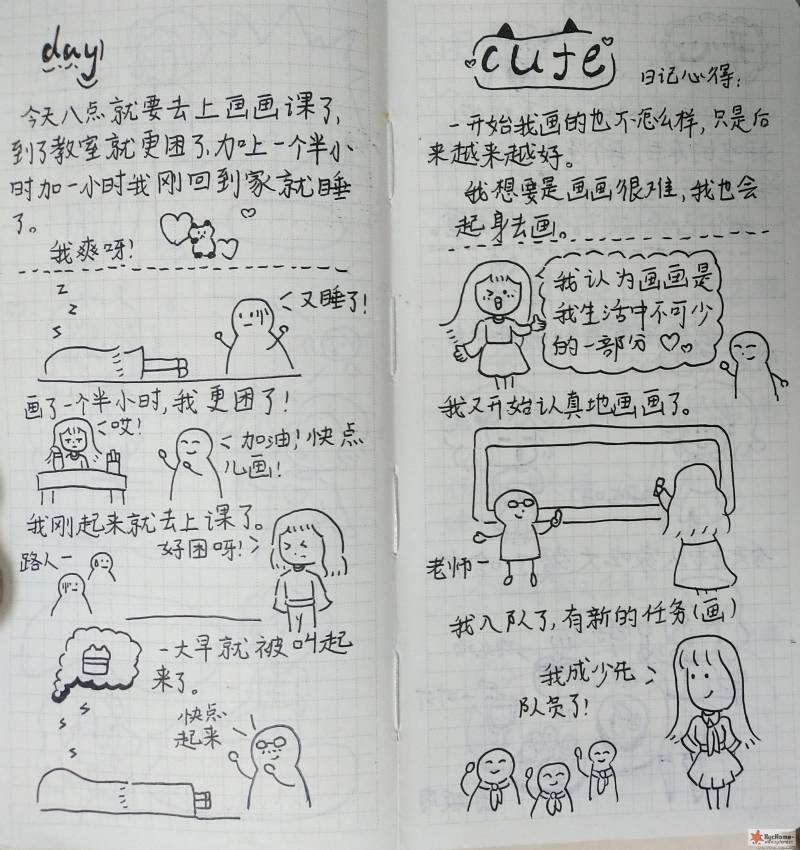 day
今天八点就要去上画画课了,
到了教室就更困了,加上一个半小
时加一小时我刚回到家就睡
了。
我爽呀!
z
z
s
又睡了!
画了一个半小时,我更困了!
哎!
加油!快点
儿画!
我刚起来就去上课了。
好困呀!
路人一
一大早就被叫起
来了。
s
s
快点
起来
cute
日记心得:
一开始我画的也不怎么样,只是后
来越来越好。
我想要是画画很难,我也会
起身去画。
我认为画画是
我生活中不可少
的一部分
我又开始认真地画画了。
老师一
我入队了,有新的任务(画)
我成少先
队员了!
HycHome